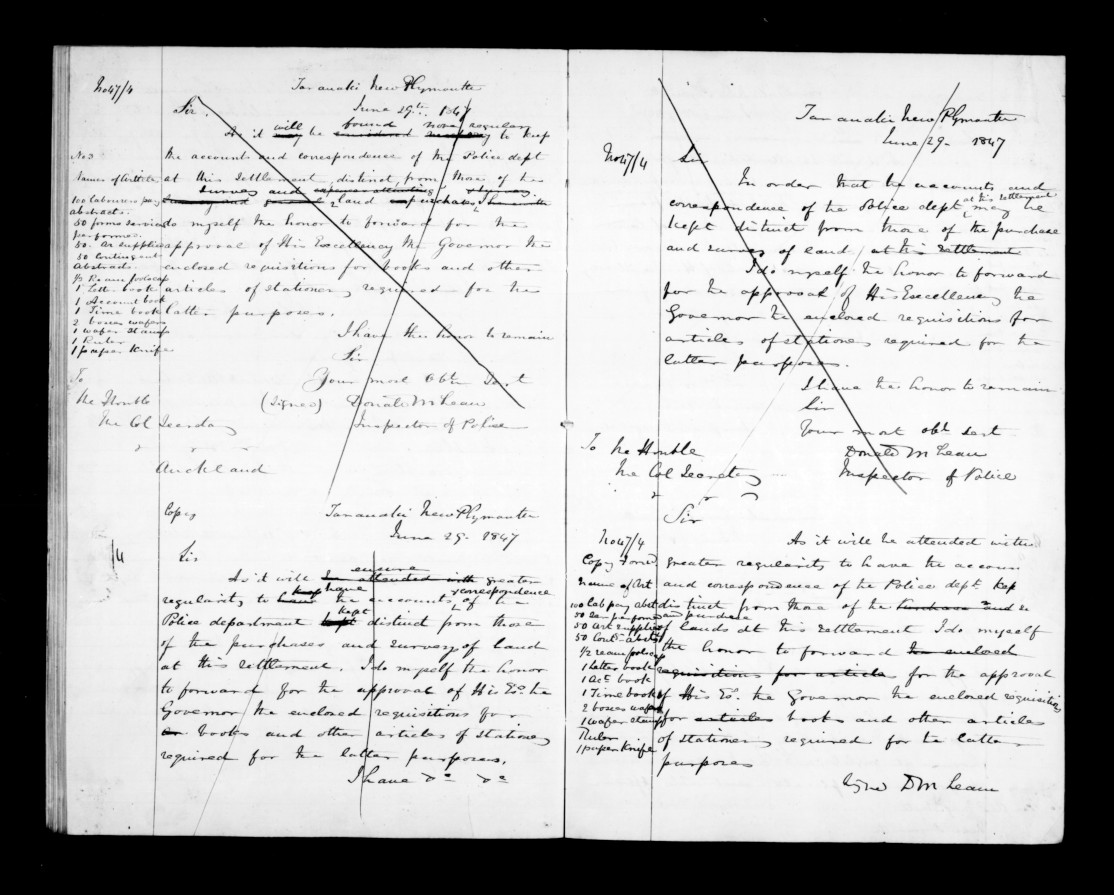 No 47/4
Taranaki New Plymouth
June 29th. 1847
Sir.
will bound more regular
As it may be considered necessary to keep
the account and correspondence of the Police dept
at this Settlement, distinct, from those of the
Survey and expenses attending
land purchases, I
do myself the honor to forward for the
approval of His Excellency the Governor the
enclosed requisitions for books and other
articles of stationery required for the
latter purposes.
I have the honor to remain
Sir
Your most Obt Sert
(signed) Donald McLean
Inspector of Police
No 3
Names of Article
100 labourers pay
abstracts.
50 forms services
performed
50. Ar supplies
50 Contingent
Abstracts
1/2 Ream foolscap
1 Letter book
1 Account book
1 Time book
2 boxes wafers
1 wafer stamp
1 Ruler
1 paper Knife
To
The Honble
The Col Secretary
Auckland
Copy
Taranaki New Plymouth
June 29. 1847
/4
Sir
ensure
As it will be attended with greater
kept have & correspondence
regularity to have the accounts of the
kept
Police department kept distinct from those
of the purchases and surveys of land
at this settlement. I do myself the honor
to forward for the approval of His Ex. the
Governor the enclosed requisitions for
books and other articles of stationery
required for the latter purposes.
I have &c &c
Taranaki New Plymouth
June 29. 1847
No 47/4
Sir
In order that the accounts and
at this settlement
correspondence of the Police dept may be
kept distinct from those of the purchase
and survey of land at this settlement
I do myself the honor to forward
for the approval of His Excellency the
Governor the enclosed requisitions for
articles of stationery required for the
latter purposes.
I have the honor to remain
Sir
Your most obt sert
Donald McLean
Inspector of Police
To the Honble
The Col Secretary
Sir
No 47/4
As it will be attended with
greater regularity to have the account
and correspondence of the Police dept. kep
distinct from those of the purchase and
and purchase
of lands at this settlement I do myself
the honor to forward the enclosed
requisitions for articles for the approval
of His Ex. the Governor the enclosed requisitions
for articles books and other articles
of stationery required for the latter
purposes
Signed D McLean
Copy Forwd
Name of Art
100 lab pay abst
50 ser per forms
50 Art supplies
50 Cont. abst
1/2 ream foolscap
1 Letter book
1 Act book
1 Time book
2 boxes wafers
1 wafer stamp
Ruler
1 paper Knife